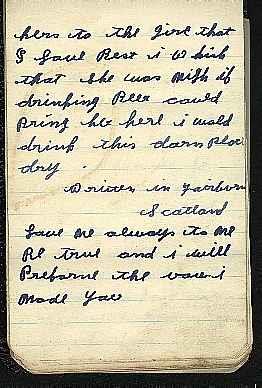 hers to the girl that
I Love Best i Wish
that she was With if
drinking Beer could
Bring her here i wold
drink this darn place
dry.
Driven in Fairburn
Scotland
Love me always to me
Be true and i will
the vow i
Made You